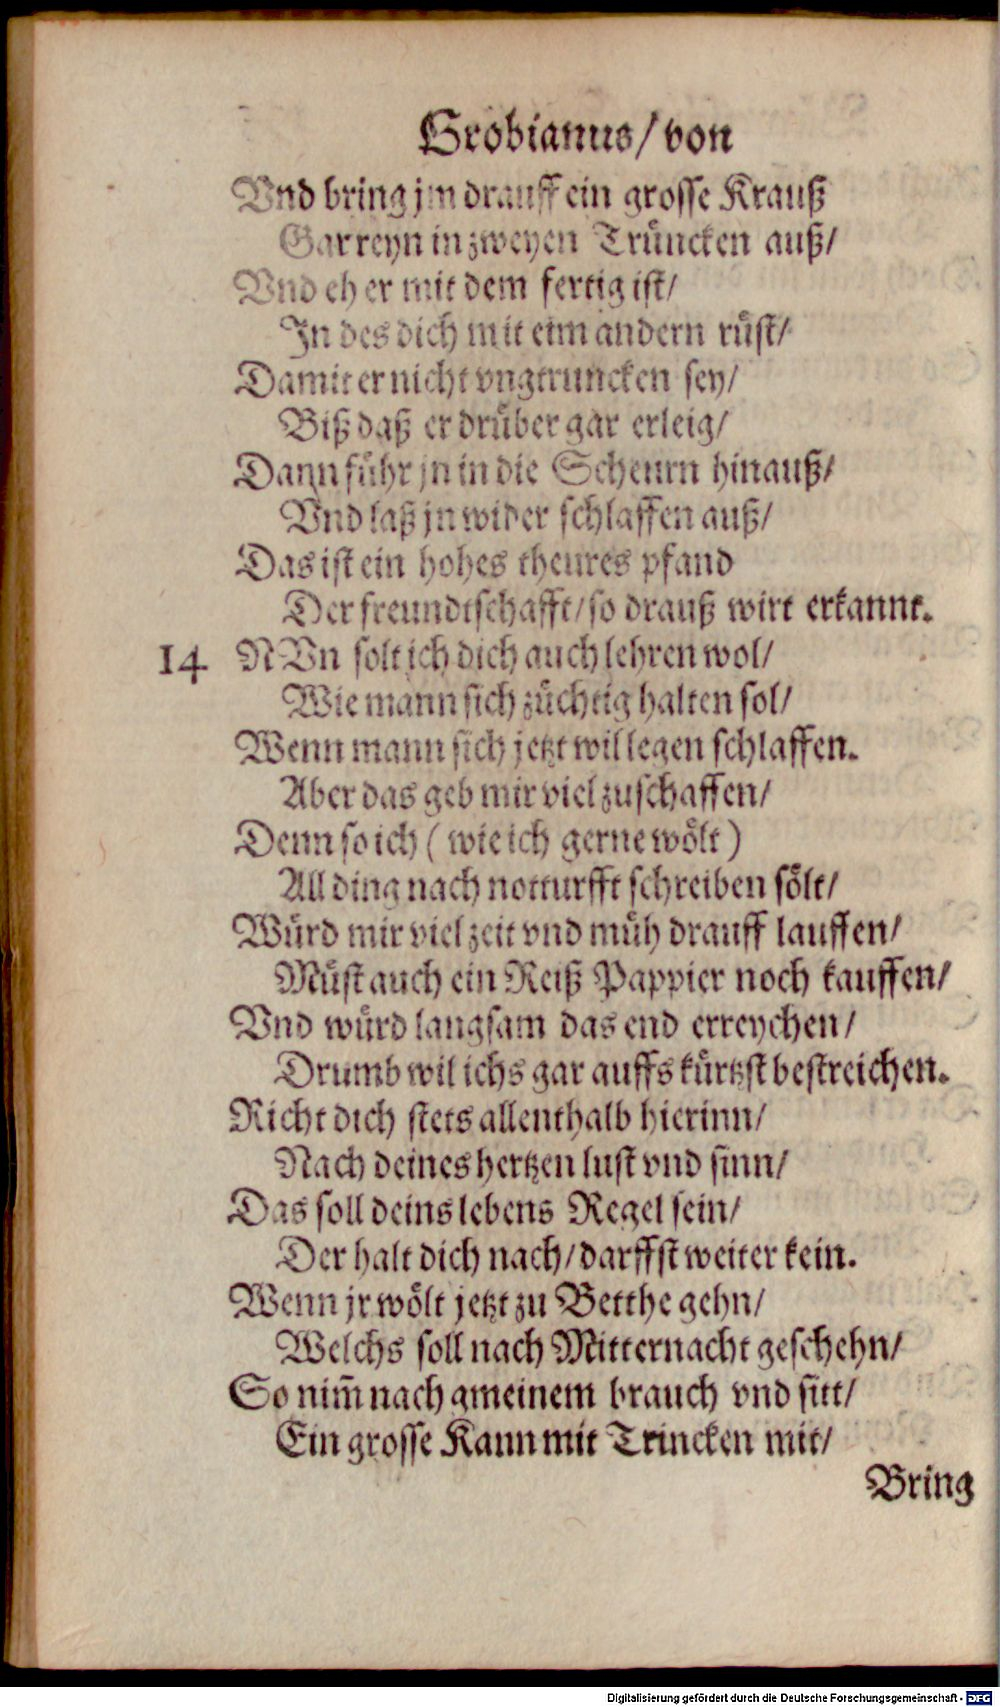 Grobianus/ von
Vnd bring jm drauff ein grosse Krauß
Gar reyn in zweyen Trüncken auß/
Vnd eh er mit dem fertig ist/
In des dich mit eim andern rüst/
Damit er nicht vngtruncken sey/
Biß daß er drüber gar erleig/
Dann führ jn in die Scheurn hinauß/
Vnd laß jn wider schlaffen auß/
Das ist ein hohes theures pfand
Der freundtschafft/ so drauß wirt erkannt.
14 NVn solt ich dich auch lehren wol/
Wie mann sich züchtig halten sol/
Wenn mann sich jetzt wil legen schlaffen.
Aber das geb mir viel zuschaffen/
Denn so ich ( wie ich gerne wölt )
All ding nach notturfft schreiben sölt/
Würd mir viel zeit vnd müh drauff lauffen/
Müst auch ein Reiß Pappier noch kauffen/
Vnd würd langsam das end erreychen/
Drumb wil ichs gar auffs kürtzst bestreichen.
Richt dich stets allenthalb hierinn/
Nach deines hertzen lust vnd sinn/
Das soll deins lebens Regel sein/
Der halt dich nach/ darffst weiter kein.
Wenn jr wölt jetzt zu Betthe gehn/
Welchs soll nach Mitternacht geschehn/
So nim̃ nach gmeinem brauch vnd sitt/
Ein grosse Kann mit Trincken mit/
Bring
Digitalisierung gefördert durch die Deutsche Forschungsgemeinschaft - DFG